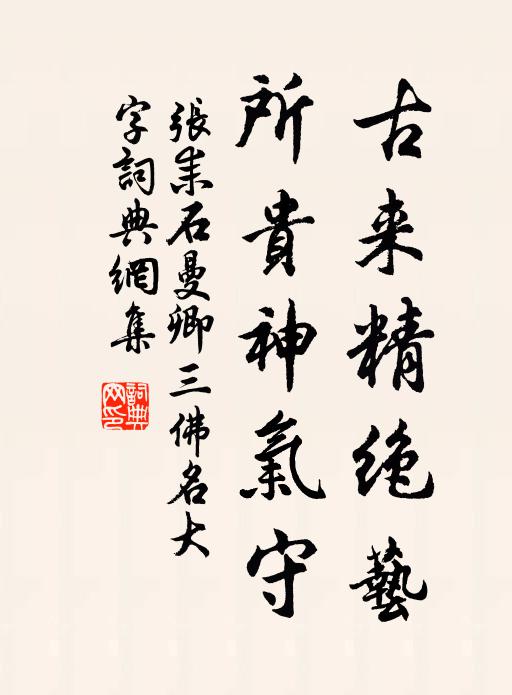 古来精绝藝
所貴神氣守
張耒石曼卿三佛名大
字詞典網集
詞典
网印